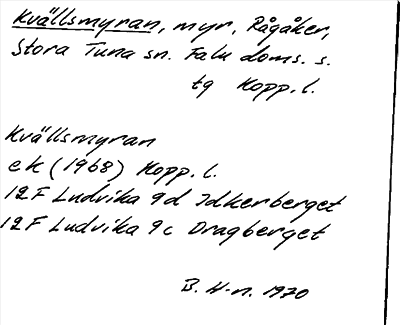 Kvällsmyran, myr, Rågåker,
Stora Tuna sn. Falu doms. s.
tg Kopp. l.
Kvällsmyran
ek (1968) Kopp. l.
12F Ludvika 9d Idkerberget
12F Ludvika 9c Dragberget
B. H-n. 1970